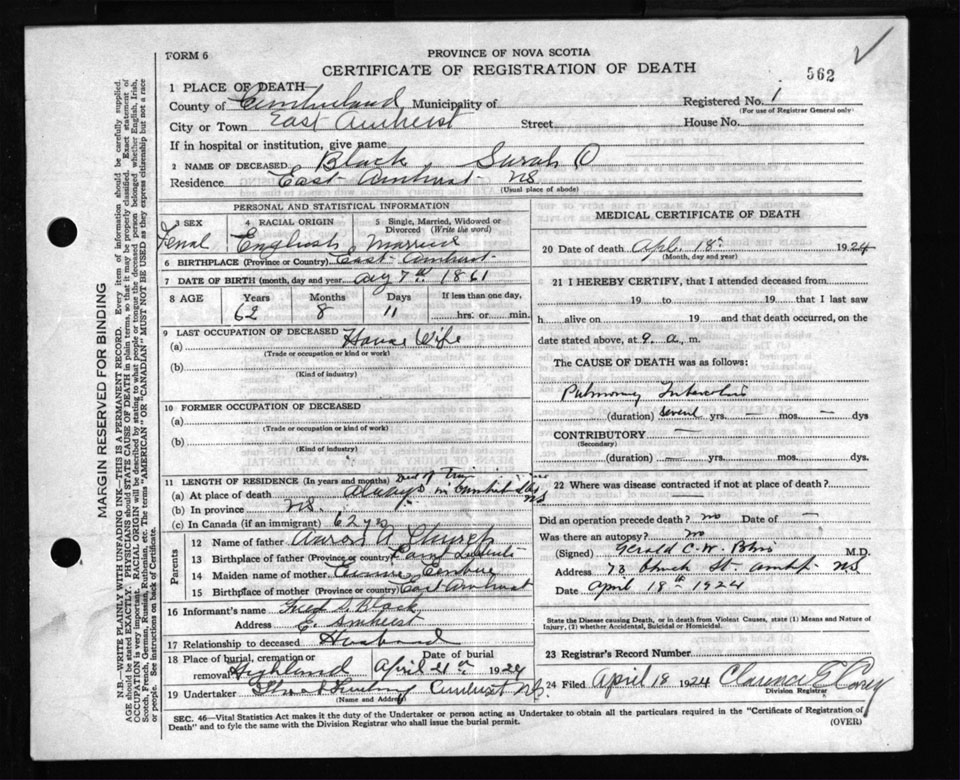 FORM 6
PROVINCE OF NOVA SCOTIA
CERTIFICATE OF REGISTRATION OF DEATH
562
1 PLACE OF DEATH
County of Cumberland Municipality of Registered No. 1
(For use of Registrar General only)
City or Town East Amherst Street House No.
If in hospital or institution, give name
2 NAME OF DECEASED Black Sarah O
Residence East Amherst NS
(Usual place of abode)
PERSONAL AND STATISTICAL INFORMATION
3 SEX 4 RACIAL ORIGIN 5 Single, Married, Widowed or Divorced (Write the word)
English
6 BIRTHPLACE (Province or Country) East Amherst
7 DATE OF BIRTH (month, day and year) Aug 7th 1861
8 AGE Years Months Days If less than one day,
62 8 11 hrs. or min.
9 LAST OCCUPATION OF DECEASED
(a) House Wife
(Trade or occupation or kind or work)
(b)
(Kind of industry)
10 FORMER OCCUPATION OF DECEASED
(a)
(Trade or occupation or kind of work)
(b)
(Kind of industry)
11 LENGTH OF RESIDENCE (In years and months)
(a) At place of death always in
(b) In province NS.
(c) In Canada (if an immigrant) 62 yrs
Parents
12 Name of father Aaron A
13 Birthplace of father (Province or country)
14 Maiden name of mother
15 Birthplace of mother (Province or country) East Amherst
16 Informant's name Fred S. Black
Address E Amherst
17 Relationship to deceased Husband
18 Place of burial, cremation or removal Highland Date of burial April 21st 1924
19 Undertaker Amherst NS.
(Name and Address)
MEDICAL CERTIFICATE OF DEATH
20 Date of death Apl. 18th 1924
(Month, day and year)
21 I HEREBY CERTIFY, that I attended deceased from
19 to 19 that I last saw
h alive on 19 and that death occurred, on
date stated above, at 9. a. m.
The CAUSE OF DEATH was as follows:
Pulmonary Tuberculosis
(duration) several yrs. — mos. — dys
CONTRIBUTORY —
(Secondary)
(duration) — yrs. mos. dys
22 Where was disease contracted if not at place of death?
Did an operation precede death? no Date of —
Was there an autopsy? no
(Signed) Gerald C. W. M.D.
Address 73 Church St. NS
Date April 18th 1924
State the Disease causing Death, or in death from Violent Causes, state (1) Means and Nature of Injury, (2) whether Accidental, Suicidal or Homicidal.
23 Registrar's Record Number
24 Filed April 18 1924 Clarence E
Division Registrar
SEC. 46—Vital Statistics Act makes it the duty of the Undertaker or person acting as Undertaker to obtain all the particulars required in the "Certificate of Registration of
Death" and to fyle the same with the Division Registrar who shall issue the burial permit.
(OVER)
MARGIN RESERVED FOR BINDING
N.B.—WRITE PLAINLY WITH UNFADING INK—THIS IS A PERMANENT RECORD. Every item of information should be carefully supplied.
AGE should be stated EXACTLY. PHYSICIANS should STATE CAUSE OF DEATH in plain terms, so that it may be properly classified. Exact statement of
OCCUPATION is very important. RACIAL ORIGIN will be described by stating to what people or tongue the deceased person belonged whether English, Irish,
Scotch, French, German, Russian, Ruthenian, etc. The terms "AMERICAN" OR "CANADIAN" MUST NOT BE USED as they express citizenship but not a race
or people. See instructions on back of Certificate.